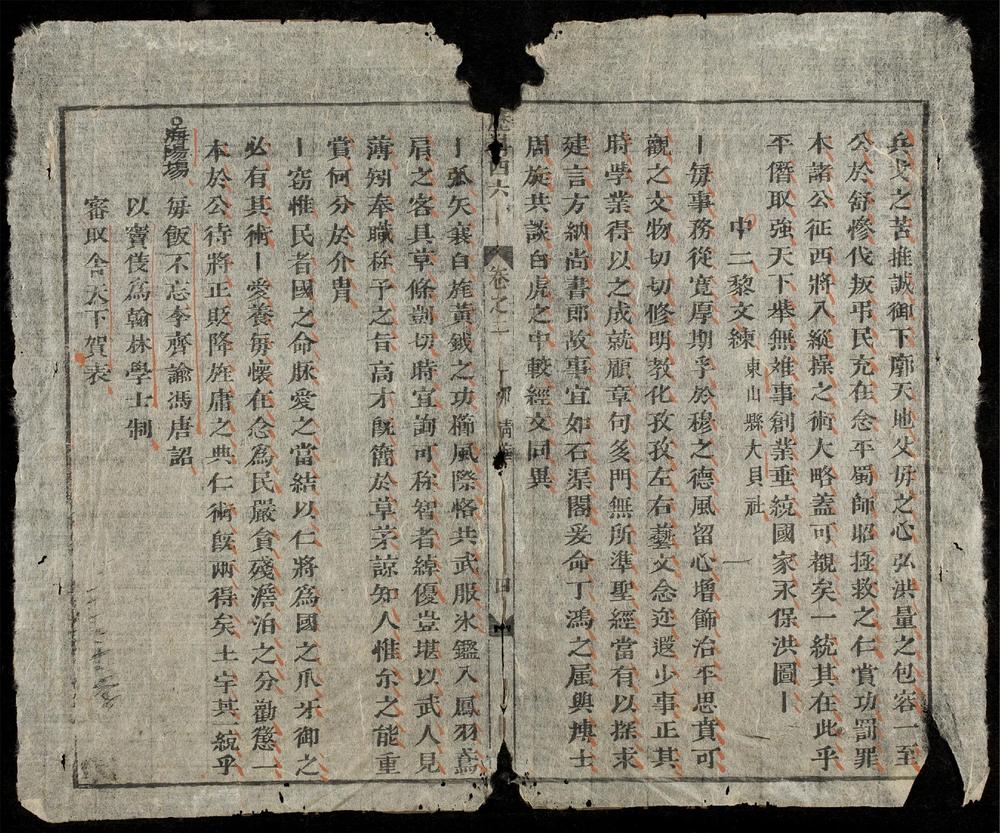 兵戈之苦推誠御下廓天地父毋之心弘洪量之包容一至
公於舒慘伐叛弔民充在念平蜀師昭拯救之仁賞功罰罪
本諸公征西將入縱操之術大略蓋可覩矣一統其在此乎
平僭取強天下举無难事創業垂統國家永保洪圖
中二黎文練東山縣大貝社
一每事務從寬厚期孚於穆之德風留心增飾治平思賁可
觀之文物切切修明教化孜孜左右藝文念迩遐少事正其
時學業得以之成就顧章句多門無所準聖經當有以探求
建言方納尚書郎故事宜如石渠閣爰命丁鴻之属與博士
周旋共談白虎之中較經文同異
四六
卷之二
四
一弧矢襄自旄黃鉞之功櫛風際恪共武服氷鑑入鳳羽鳶
肩之客具草條剴切時宜詢可称智者綽優豈堪以武人見
薄矧奉職称予之旨高才旣簡於草茅諒知人惟尔之能重
賞何分於介胄
一窃惟民者國之命脉愛之當結以仁將爲國之爪牙御之
必有其術一愛養每懷在念爲民嚴貪殘澹泊之分勸懲一
本於公待將正貶降旌庸之典仁術旣兩得矣土宇其一統乎
海陽場
每飯不忘李齊論馮唐詔
以竇儀爲翰林學士制
審取舍天下賀表